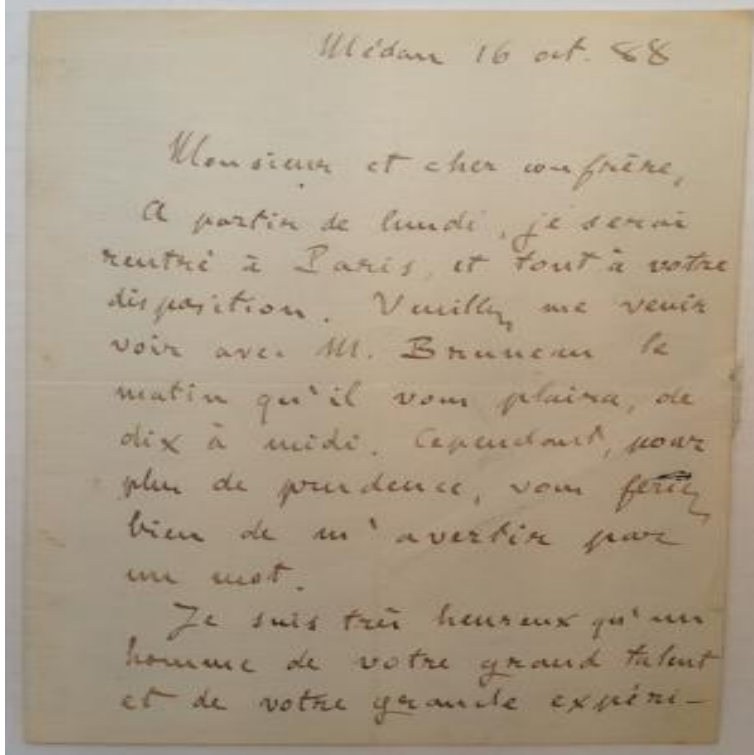 Médan 16 oct. 88
Monsieur et cher confrère,
A partir de lundi, je serai
rentré à Paris, et tout à votre
disposition. Veuillez me venir
voir avec M. Bruneau le
matin qu'il vous plaira, de
dix à midi. Cependant, pour
plus de prudence, vous feriez
bien de m'avertir par
un mot.
Je suis très heureux qu'un
homme de votre grand talent
et de votre grande expéri-